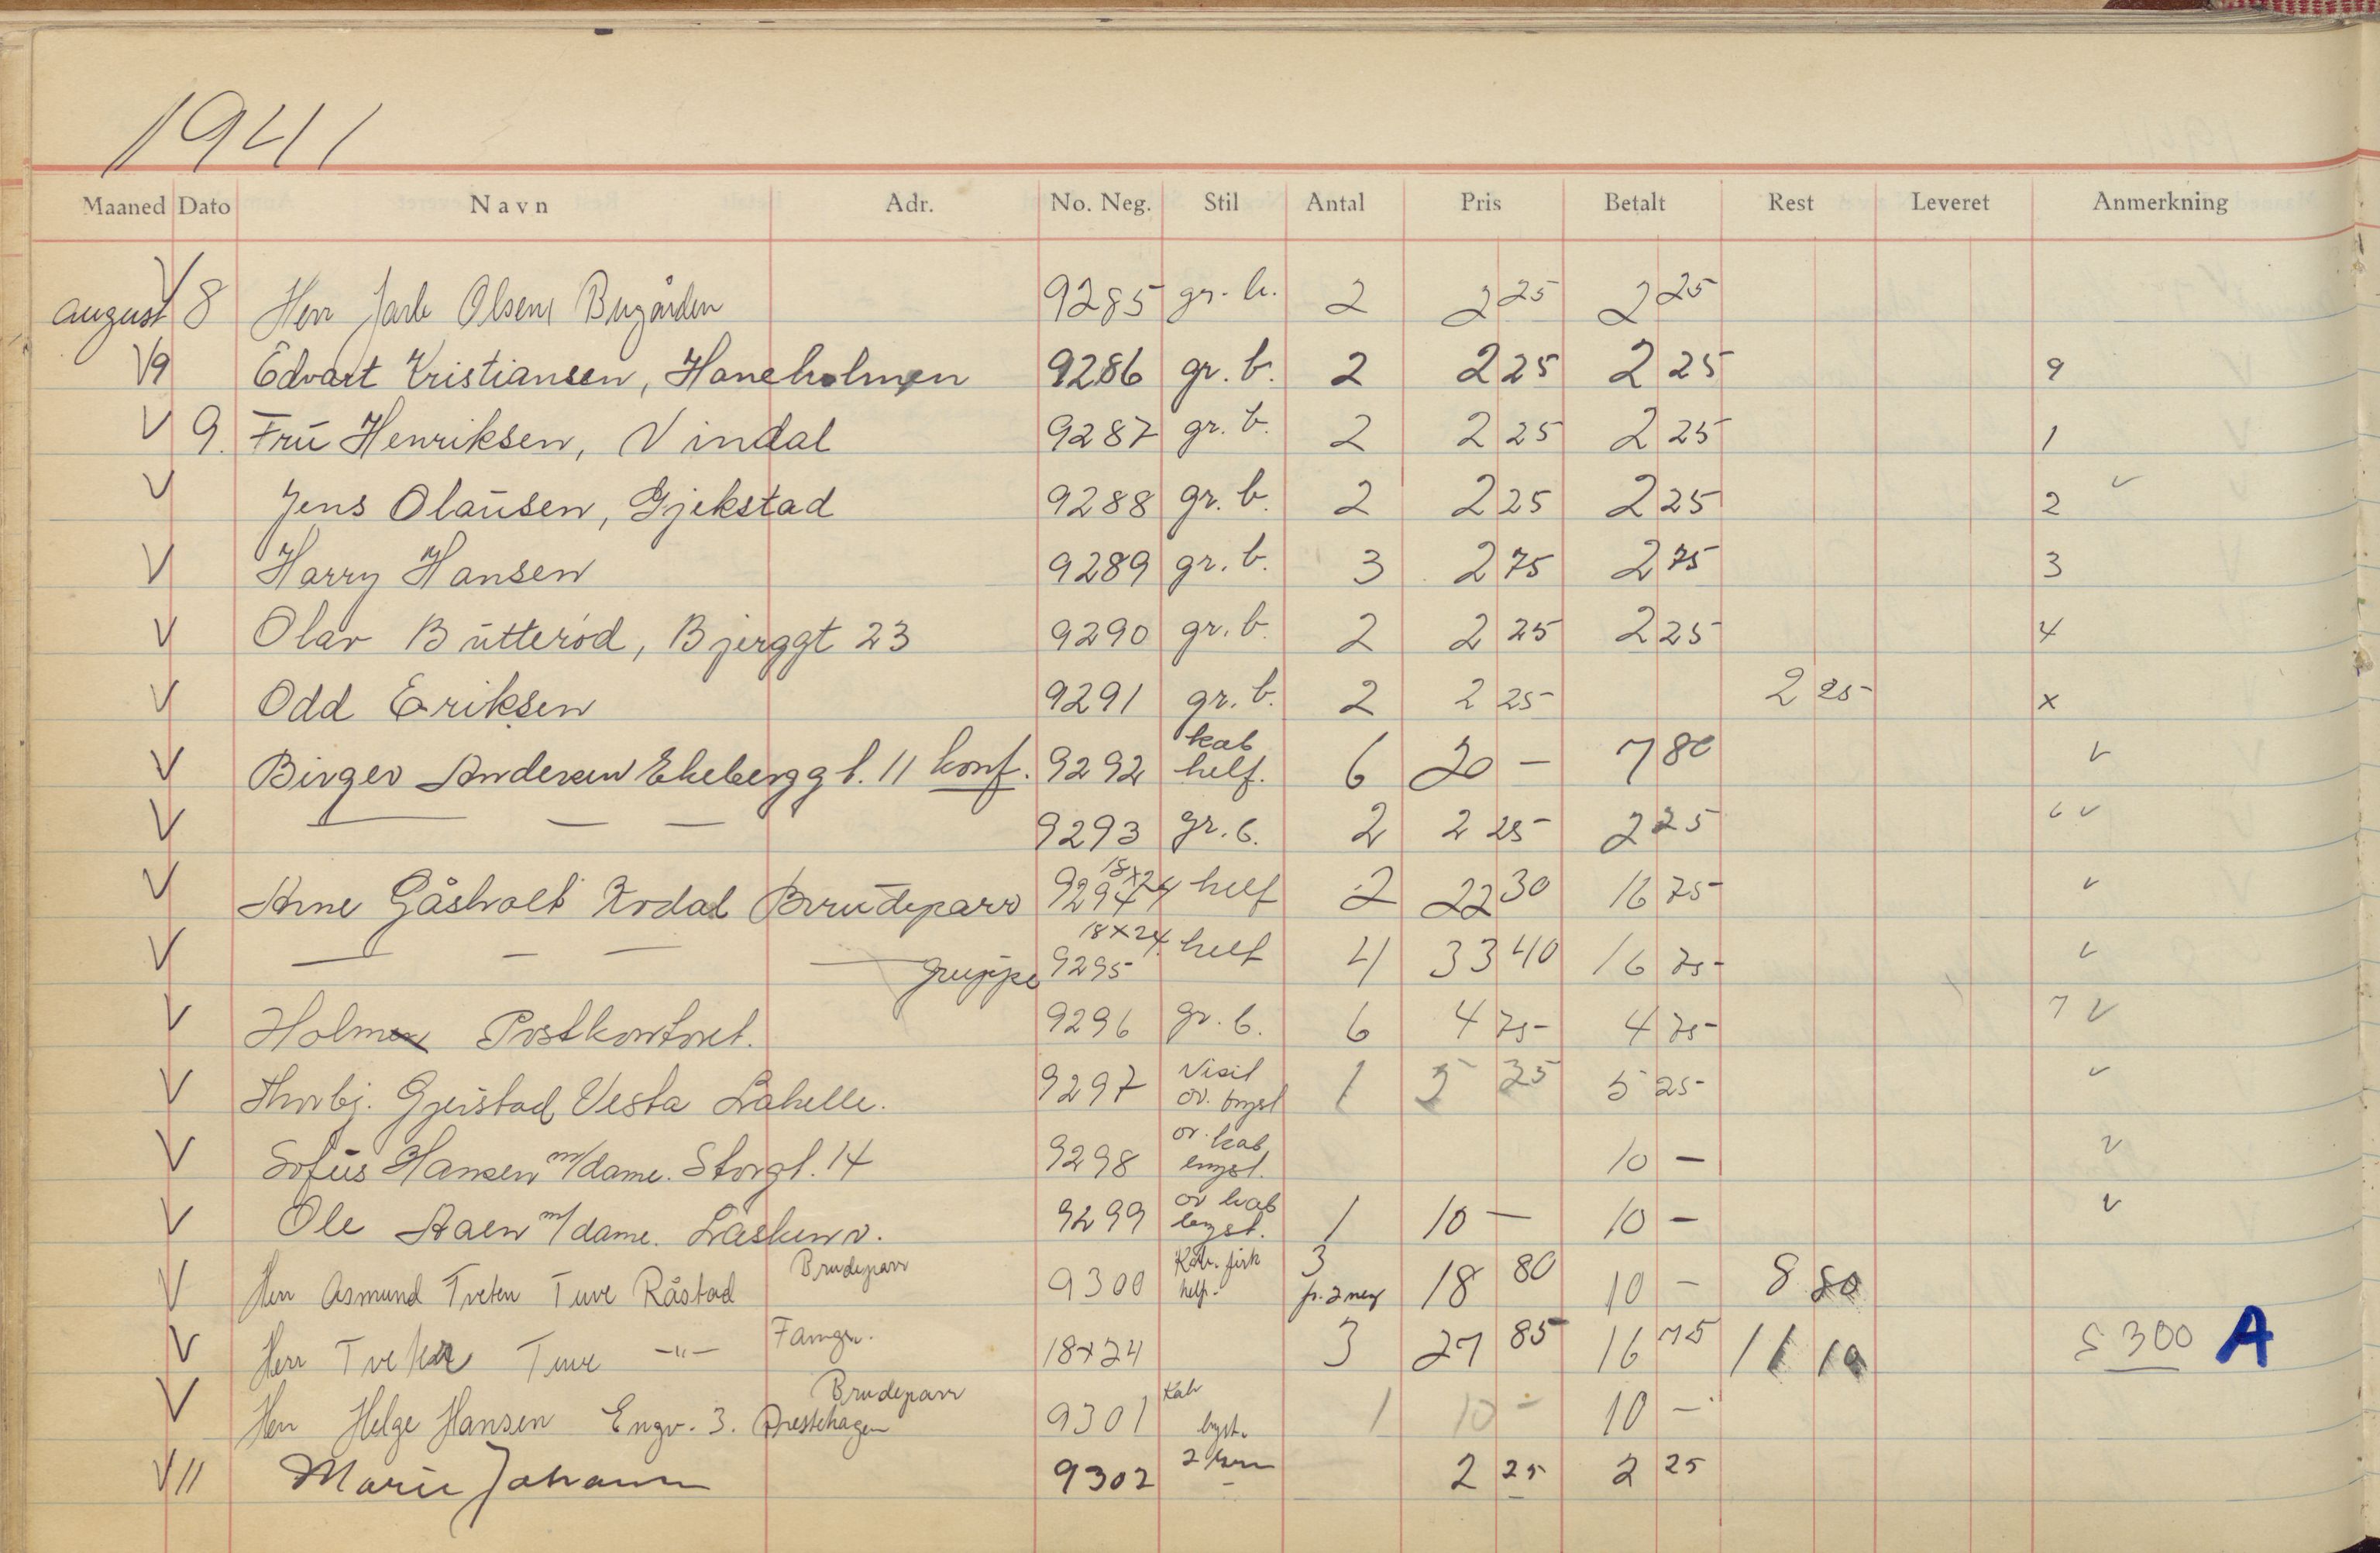 1941
Maaned Dato Navn Adr. No. Neg. Stil Antal Pris Betalt Rest Leveret Anmerkning
V august 8 Herr Jarle Olsen Bugården 9285 gr. b. 2 2 25 2 25
V 9 Edvart Kristiansen, Haneholmen 9286 gr. b. 2 2 25 2 25 9
V 9. Frū Henriksen, Vindal 9287 gr. b. 2 2 25 2 25 1
V Jens Olaūsen, Gjekstad 9288 gr. b. 2 2 25 2 25 2 v
V Harry Hansen 9289 gr. b. 3 2 75 2 75 3
V Olav Būtterød, Bjerggt 23 9290 gr. b. 2 2 25 2 25 4
V Odd Eriksen 9291 gr. b. 2 2 25 2 25 x
V Birger Andersen Ekeberggt. 11 konf. 9292 kab helf. 6 20 — 7 80 v
V — — — 9293 gr. b. 2 2 25 2 25 6 v
V Arne Gåsholt Kodal Brudeparr 9294 18x24 helf 2 22 30 16 75 v
V — — — — gruppe 9295 18x24 helf 4 33 40 16 75 v
V Holm Postkontoret. 9296 gr. b. 6 4 75 4 75 7 v
V Thorbj. Gjerstad Vesta Lahelle. 9297 Visit ov. bryst 1 5 25 5 25 v
V Sofūs Hansen m/dame. Storgt. 14 9298 ov. kab bryst. 10 — v
V Ole Aaen m/dame. Låsken v. 9299 ov kab bryst. 1 10 — 10 — v
V Herr Asmund Tveten Tuve Råstad Brudeparr 9300 Kab. helf. 3 fr. 2 neg 18 80 10 — 8 80
V Herr Tveten Tuve —"— Famgr. 18x24 3 27 85 16 75 11 10 S 300 A
V Herr Helge Hansen Engv. 3. Prestehagen Brudeparr 9301 Kab bryst. 1 10 — 10 —
V 11 Marie Johann 9302 2 2 25 2 25